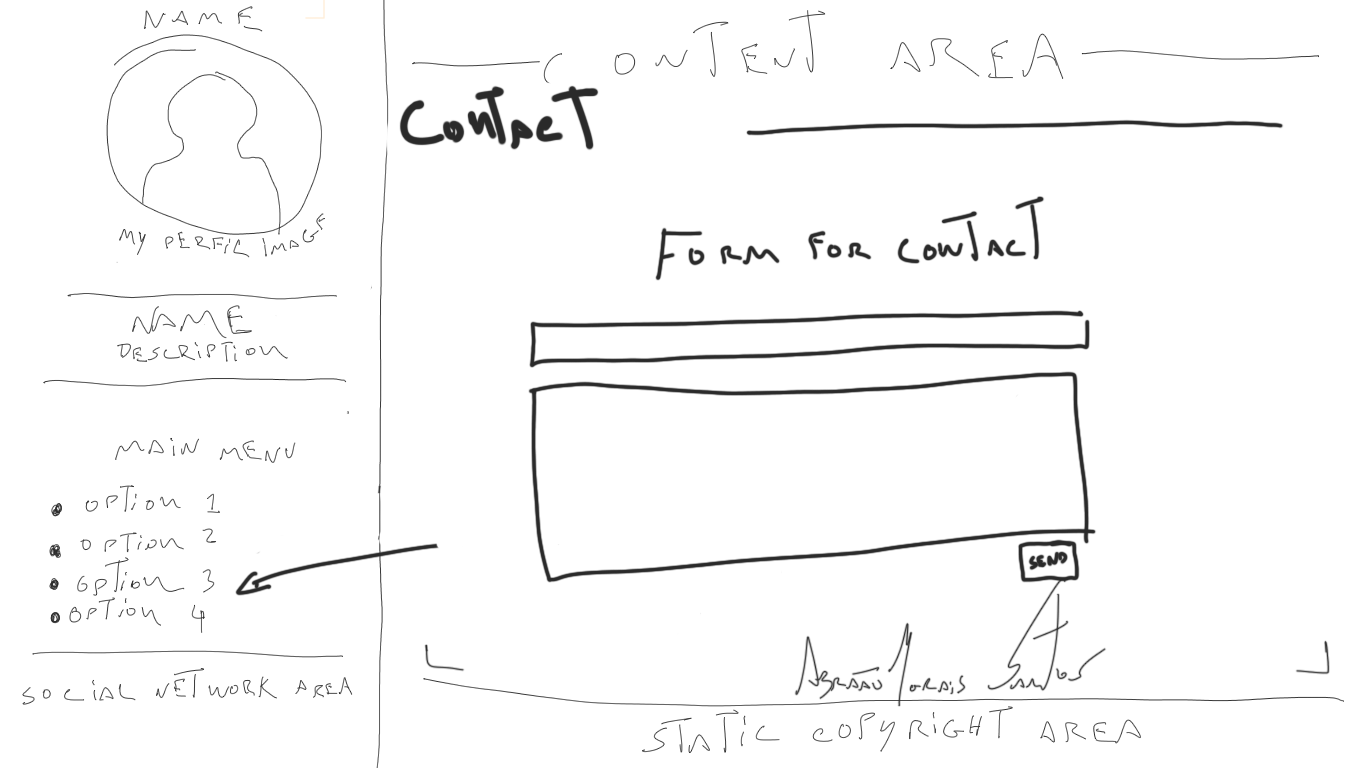 NAME
MY PERFIL IMAGE
NAME
DESCRIPTION
MAIN MENU
OPTION 1
OPTION 2
OPTION 3
OPTION 4
SOCIAL NETWORK AREA
CONTENT AREA
CONTACT
FORM FOR CONTACT
SEND
Abraão Morais Santos
STATIC COPYRIGHT AREA